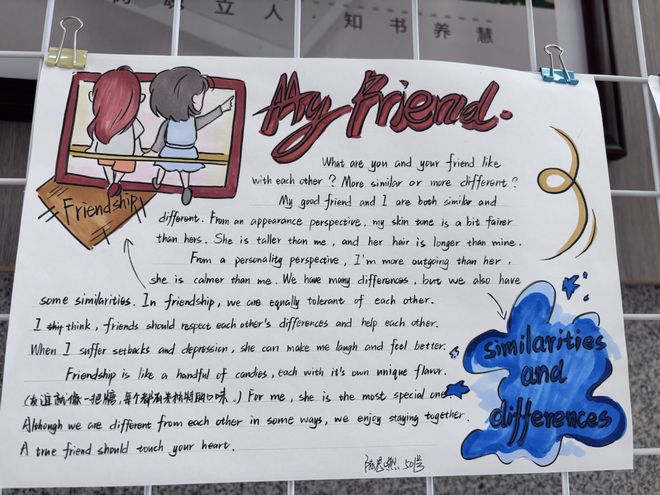 立人·知书养慧
My Friend.
Friendship
What are you and your friend like
with each other? More similar or more different?
My good friend and I are both similar and
different. From an appearance perspective, my skin tone is a bit fairer
than hers. She is taller than me, and her hair is longer than mine.
From a personality perspective, I'm more outgoing than her,
she is calmer than me. We have many differences, but we also have
some similarities. In friendship, we are equally tolerant of each other.
I think, friends should respect each other's differences and help each other.
When I suffer setbacks and depression, she can make me laugh and feel better.
Friendship is like a handful of candies, each with it's own unique flavor.
(友谊就像一把糖,每个都有其独特的口味.) For me, she is the most special one
Although we are different from each other in some ways, we enjoy staying together.
A true friend should touch your heart.
Similarities
and
differences
50号